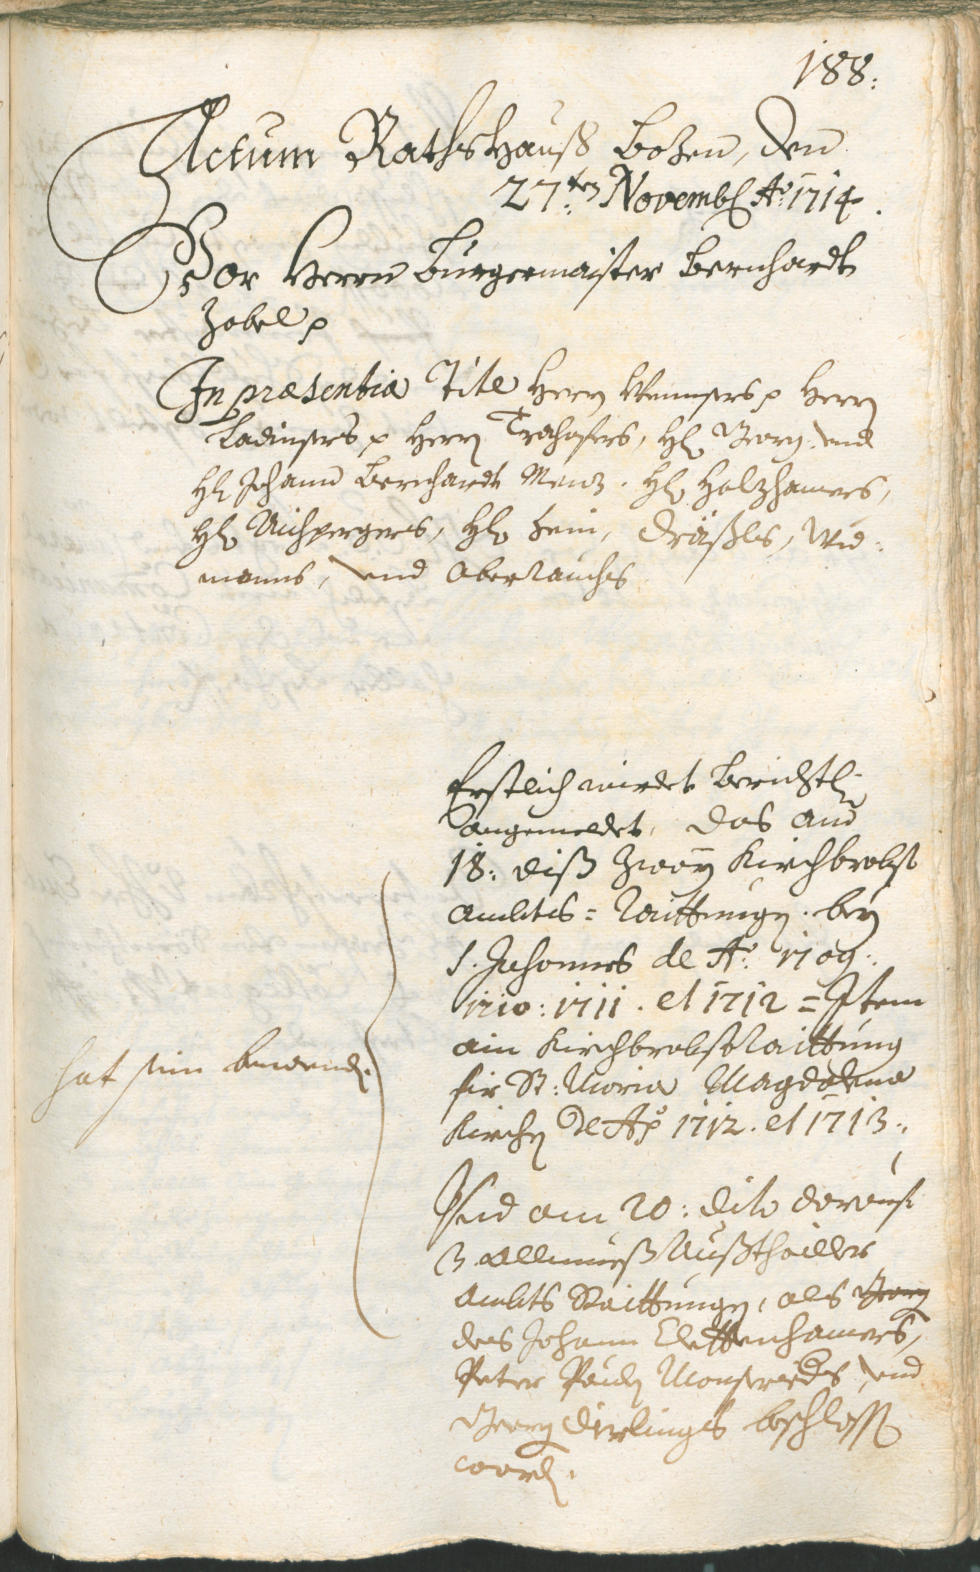 188.
Actum Rathshauß Bozen, den
27.ten Novemb. Ao: 1714.
Vor Herrn Burgermaister Bernhardt
Zobel p
In præsentia Titl Herrn Wennsers p Herrn
Ladinsers p Herrn Trohofers, H. Georg und
H. Johann Bernhardt Menz. H. Holzhamers,
H. Aichpergers, H. Hein, Dräxls, Wid-
manns, und Oberrauchs
Erstlich wirdet berichtl:
angemeldet, das am
18. diß zway Kirchbrobst
ambts=Raittungen bey
S. Johannes de Ao: 1709.
1710: 1711. et 1712 = Item
ain Kirchbrobst Raittung
fir St: Maria Magdalena
Kirchen de Ao 1712. et 1713.,
Und am 20: dito darauf
3 Allmueß Außthailler
Ambts Raittungen, als Georg
des Johann Clettenhamers,
Peter Pauln und
Georg Dirlings beschlossen
worden.
hat sein bewenden.